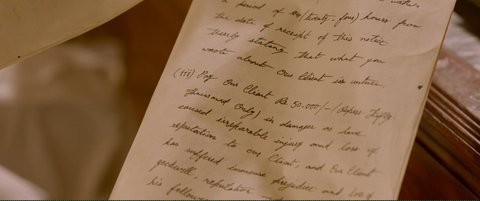 a period of 24 (twenty-four) hours from
the date of receipt of this notice
thereby stating that what you
wrote about Our Client is untrue.
(iii) Pay Our Client Rs. 50.000/- (Rupees Fifty
Thousand Only) in damages as have
caused irreparable injury and loss of
reputation to our Client, and Our Client
has suffered immense prejudice and loss of
goodwill, reputation
his follower